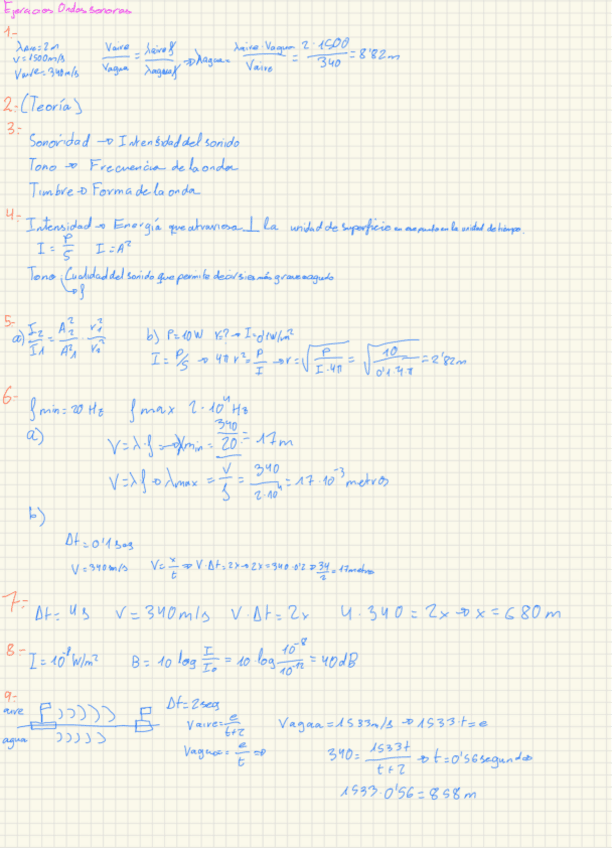 Ejercicios Ondas sonoras
1.-
λaire = 2m
V = 1500 m/s
Vaire = 340 m/s
Vaire/Vagua = λaire f/λagua f → λagua = λaire · Vagua/Vaire = 2 · 1500/340 = 8'82 m
2.- (Teoría)
3.-
Sonoridad → Intensidad del sonido
Tono → Frecuencia de la onda
Timbre → Forma de la onda
4.-
Intensidad → Energía que atraviesa ⊥ la unidad de superficie en ese punto en la unidad de tiempo.
I = P/S I = A²
Tono: Cualidad del sonido que permite decir si es más grave o agudo
↳ f
5.-
a) I₂/I₁ = A₂²/A₁² · r₁²/r₂²
b) P = 10W r? → I = 0'1 W/m²
I = P/S → 4π r² = P/I → r = √(P/(I · 4π)) = √(10/(0'1 · 4π)) = 2'82m
6.-
f min = 20 Hz f max 2 · 10⁴ Hz
a)
V = λ · f → λmin = 340/20 = 17 m
V = λ f → λmax = V/f = 340/(2 · 10⁴) = 17 · 10⁻³ metros
b)
Δt = 0'1 seg
V = 340 m/s V = x/t → V · Δt = 2x → 2x = 340 · 0'1 → 34/2 = 17 metros
7.- Δt = 4s V = 340 m/s V · Δt = 2x 4 · 340 = 2x → x = 680 m
8.- I = 10⁻⁸ W/m² B = 10 log I/I₀ = 10 log 10⁻⁸/10⁻¹² = 40 dB
9.-
aire
agua
Δt = 2 seg
Vaire = e/(t+2)
Vagua = e/t →
Vagua = 1533 m/s → 1533 · t = e
340 = 1533t/(t + 2) → t = 0'56 segundos
1533 · 0'56 = 858 m